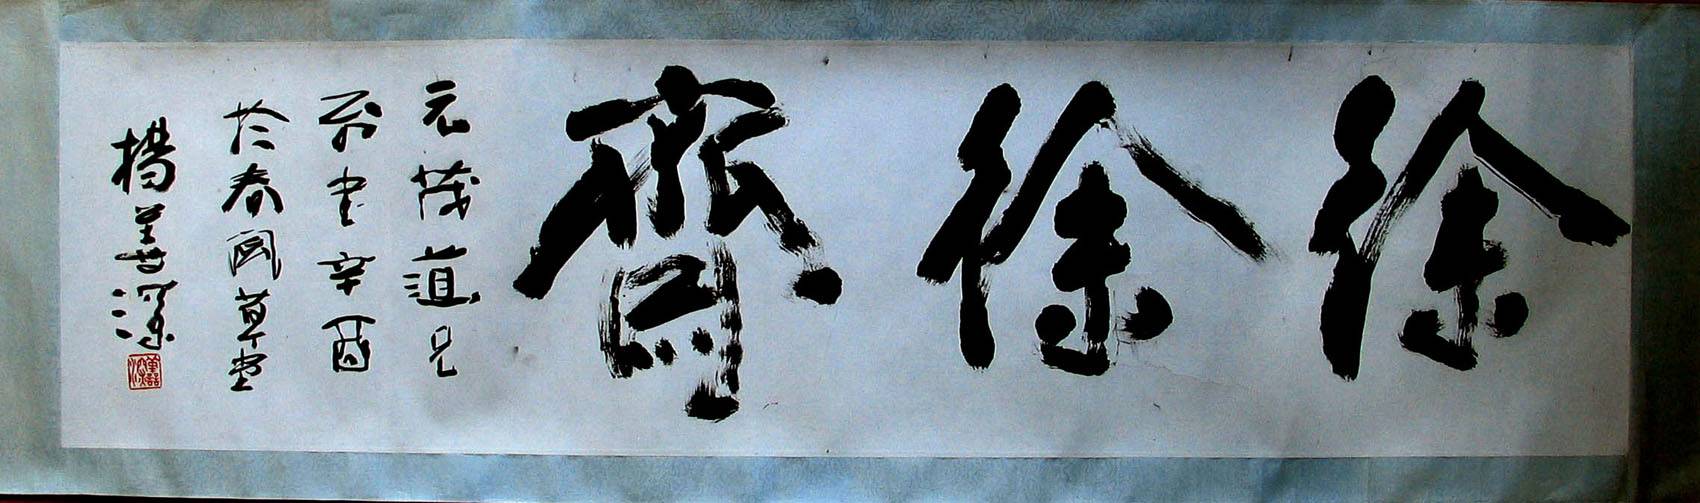 徐徐齋
元茂道兄
書辛酉
於春風草堂
楊善深